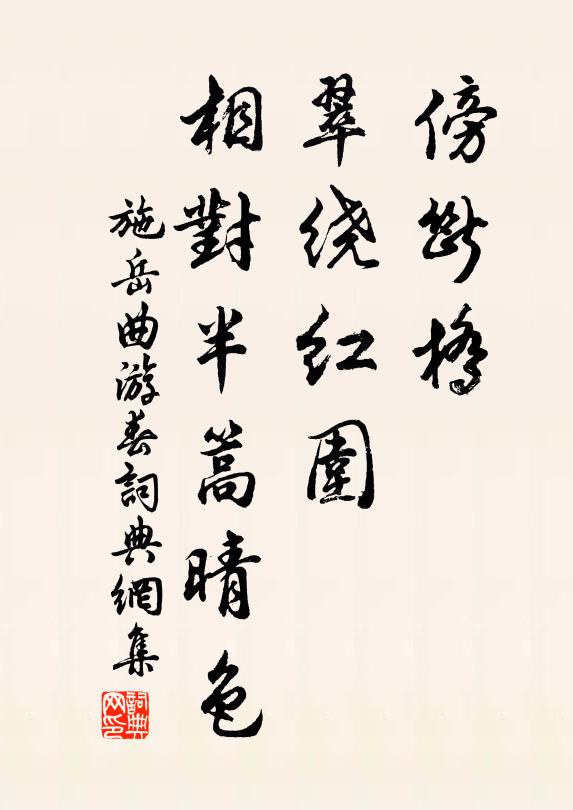 傍斷橋
翠绕红圍
相對半篙晴色
施岳曲游春詞典網集
詞典网印